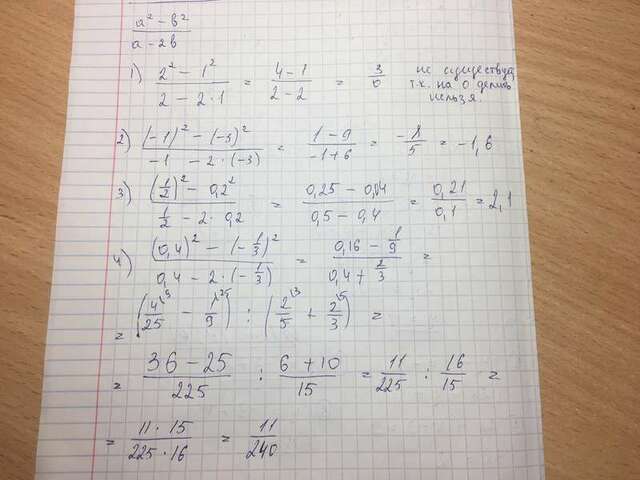 a² - b²
a - 2b
1) (2² - 1²)/(2 - 2·1) = (4 - 1)/(2 - 2) = 3/0 не существуд
т.к. на 0 делить
нельзя.
2) ((-1)² - (-3)²)/(-1 - 2·(-3)) = (1 - 9)/(-1 + 6) = -8/5 = -1,6
3) ((1/2)² - 0,2²)/(1/2 - 2·0,2) = (0,25 - 0,04)/(0,5 - 0,4) = 0,21/0,1 = 2,1
4) ((0,4)² - (-1/3)²)/(0,4 - 2·(-1/3)) = (0,16 - 1/9)/(0,4 + 2/3) =
= (4\9/25 - 1\25/9) : (2\3/5 + 2\5/3) =
= (36 - 25)/225 : (6 + 10)/15 = 11/225 : 16/15 =
= (11·15)/(225·16) = 11/240